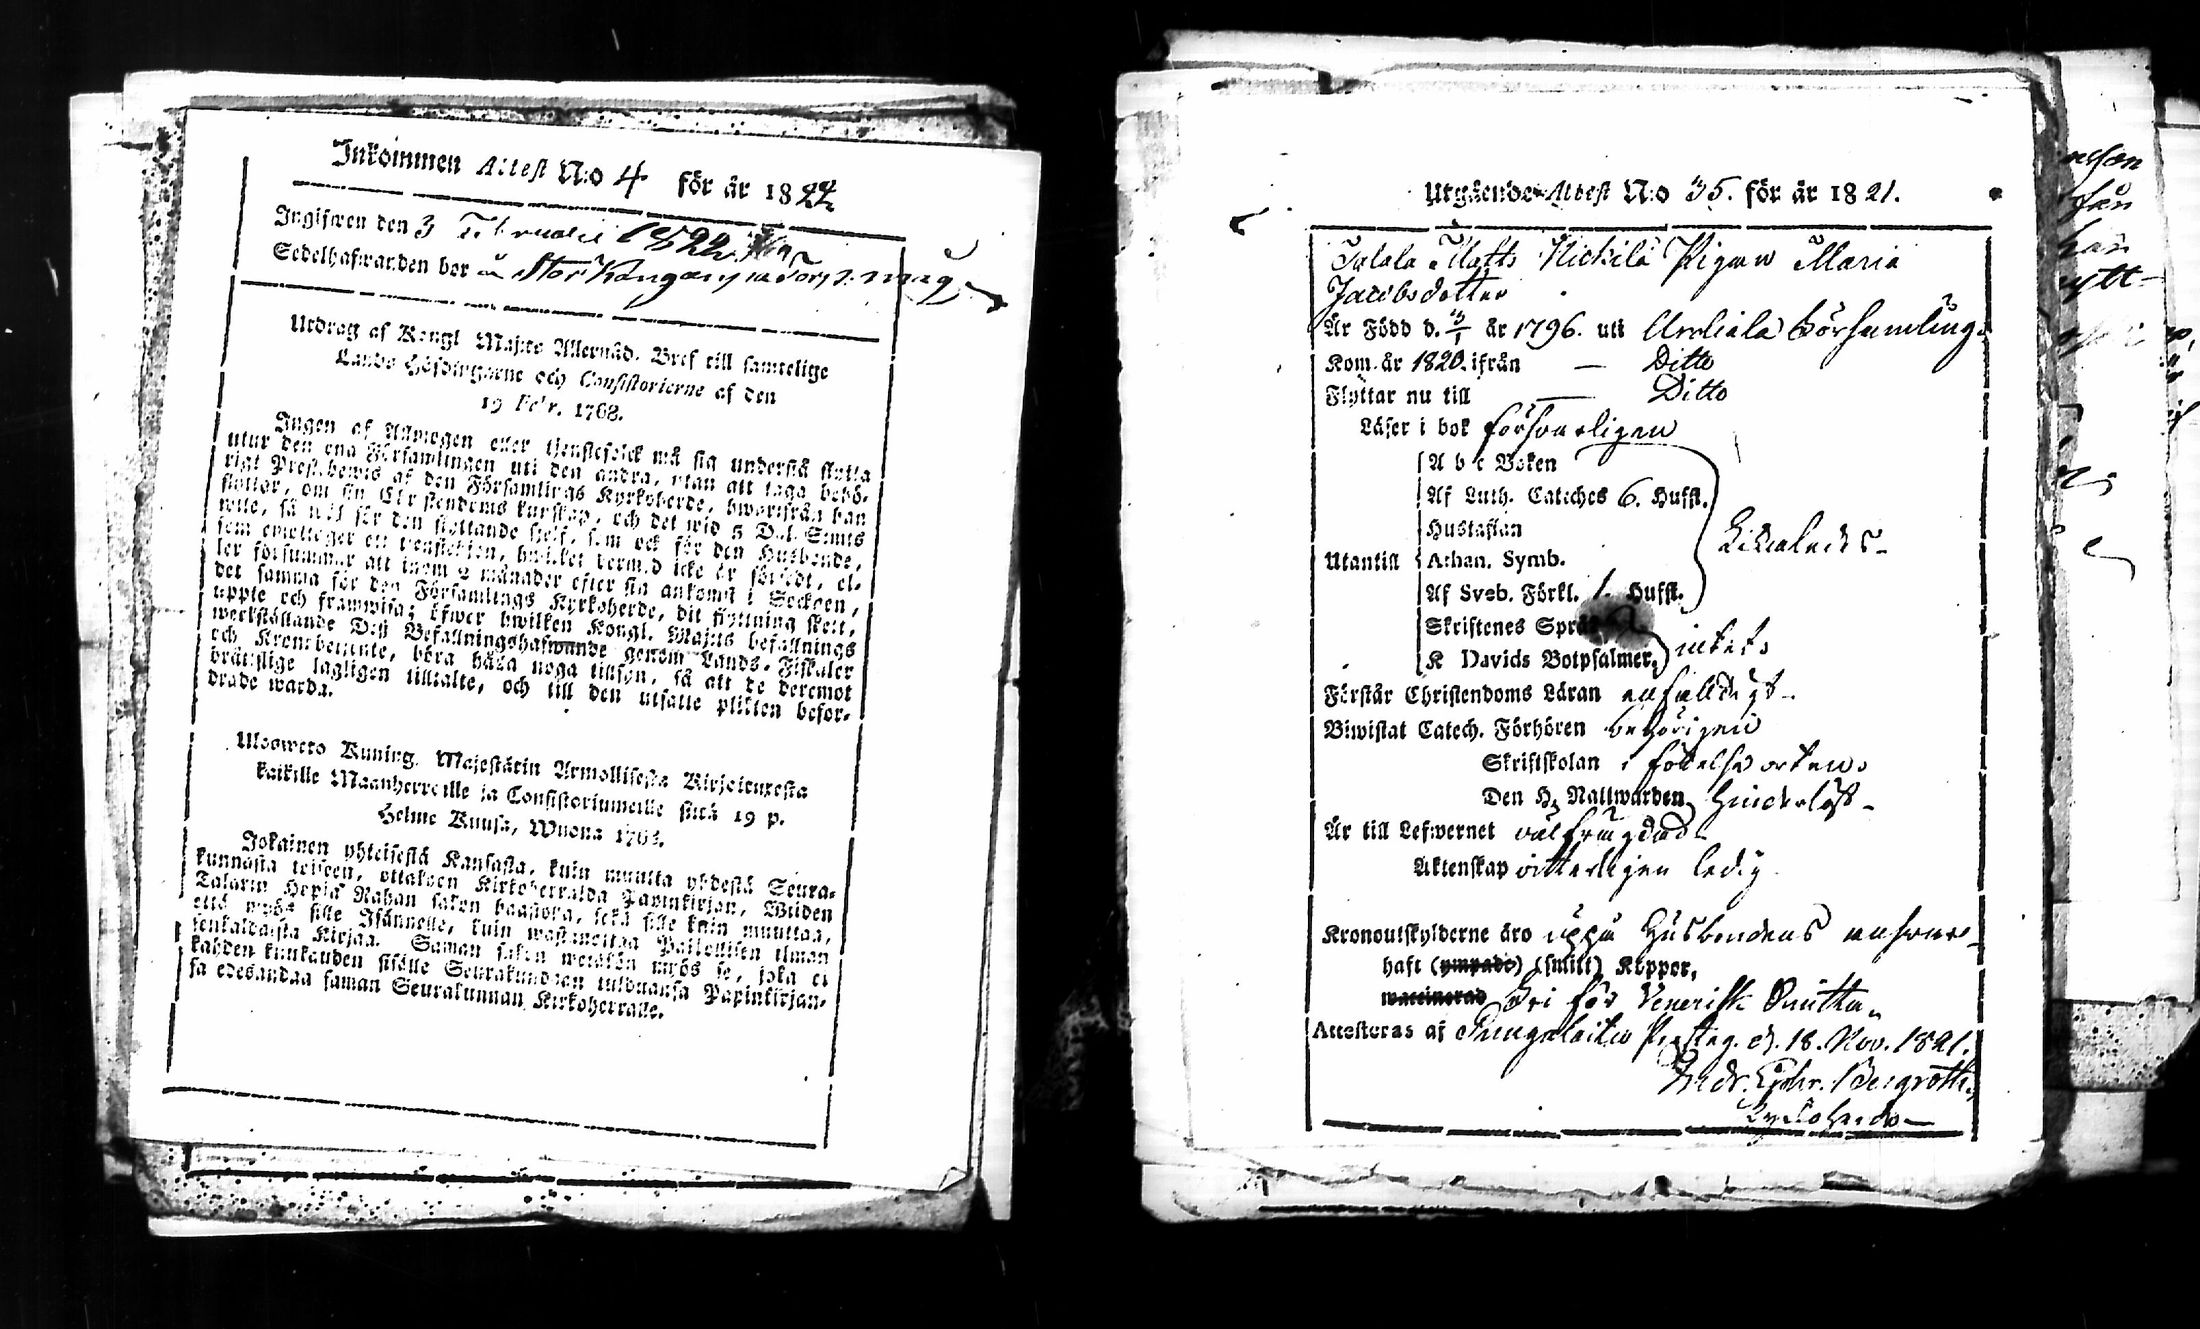 Inkommen Attest N:o 4 för år 1822
Ingifwen den 3 Februarii 1822
Sedelhafwanden bor
Utdrag af Kongl Maj:ts Allernåd. Bref till samtelige
Lands Höfdingarne och Consistorierne af den
19 Febr. 1768.
Ingen af Allmogen eller tjenstefolck må sig understå flytta
utur den ena Församlingen uti den andra, utan att taga behö-
rigt Prest.bewis af den Församlings Kyrkoherde, hwarifrån han
flyttar, om sin Christendoms kunskap, och det wid 5 Dal. Smts
wite, så wäl för den flyttande sielf, som ock för den Husbonde,
som emottager ett tienstehion, hwilket dermed icke är försedt, el-
ler försummar att inom 2 månader efter sin ankomst i Socknen,
det samma för den Församlings Kyrkoherde, dit flyttning skett,
uppte och framwisa; öfwer hwilken Kongl. Maj:ts befallnings
werkställande Dess Befallningshafwande genom Lands-Fiskaler
och Kronobetjente, böra hafva noga tillsyn, så att de deremot
brättslige lagligen tilltalte, och till den utsatte plikten befor-
drade warda.
Ulosweto Kuning. Majestätin Armollisesta Kirjoituxesta
kaikille Maanherroille ja Consistoriumeille siitä 19 p.
Helme Kuusa, Wuona 1768.
Jokainen yhteisestä Kansasta, kuin muutta yhdestä Seura-
kunnasta toiseen, ottakoon Kirkoherralda Papinkirjan, Wiiden
Talarin Hopia Rahan sakon haastolla, sekä sille kuin muuttaa,
että myös sille Isännelle, kuin wastanottaa Palkollisen ilman
senkaldaista Kirjaa. Saman sakon wetäkön myös se, joka ei
kahden kuukauden sisälle Seurakundaan tulduansa Papinkirjan-
sa edesandaa saman Seurakunnan Kirkoherralle.
Utgående Attest N:o 35. för år 1821.
Talala Matts Nickilä Pigan Maria
Jacobsdotter
Är Född d. år 1796. uti Urdiala Församling.
Kom år 1820. ifrån — Ditto
Flyttar nu till — Ditto
Läser i bok försvarligen
A b c Boken
Af Luth. Cateches 6. Hufst.
Hustaflan
Utantill Athan. Symb.
Af Sveb. Förkl. Hufst.
Likaledes
Skriftenes Språk
K Davids Botpsalmer, intet.
Förstår Christendoms Läran enfaldigt
Biwistat Catech. Förhören behörigen
Skriftskolan i födelseorten.
Den H. Nattwarden, hinderlöst
Är till Lefwernet välfrägdad
Äktenskap vitterligen ledig
Kronoutskylderne äro uppå Husbondens answar
haft (ympade) (smitt) Koppor,
waccinerad Fri för Venerisk Smitta
Attesteras af Tungelaitio Prestg. d. 18. Nov. 1821.
Fredr. Ephr. Bergroth
Kyrkoherde